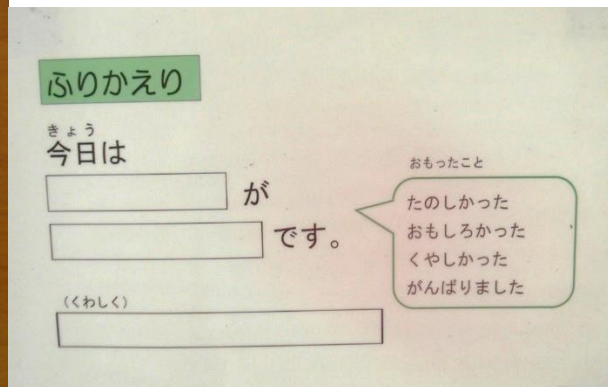 ふりかえり
きょう
今日は
が
です。
おもったこと
たのしかった
おもしろかった
くやしかった
がんばりました
(くわしく)